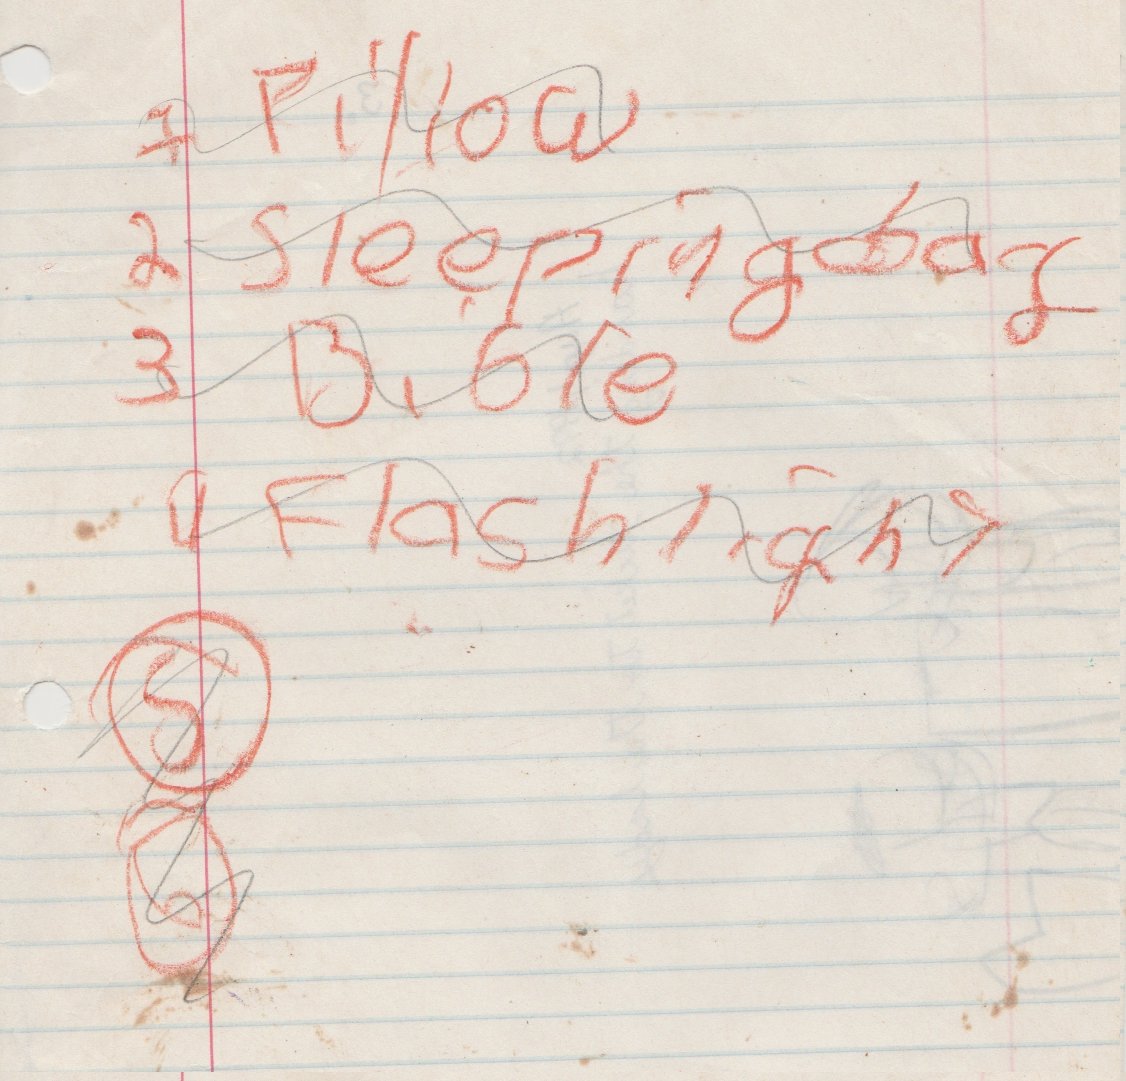 1 Pillow
2 Sleepingbag
3 Bible
4 Flashlight
5
6